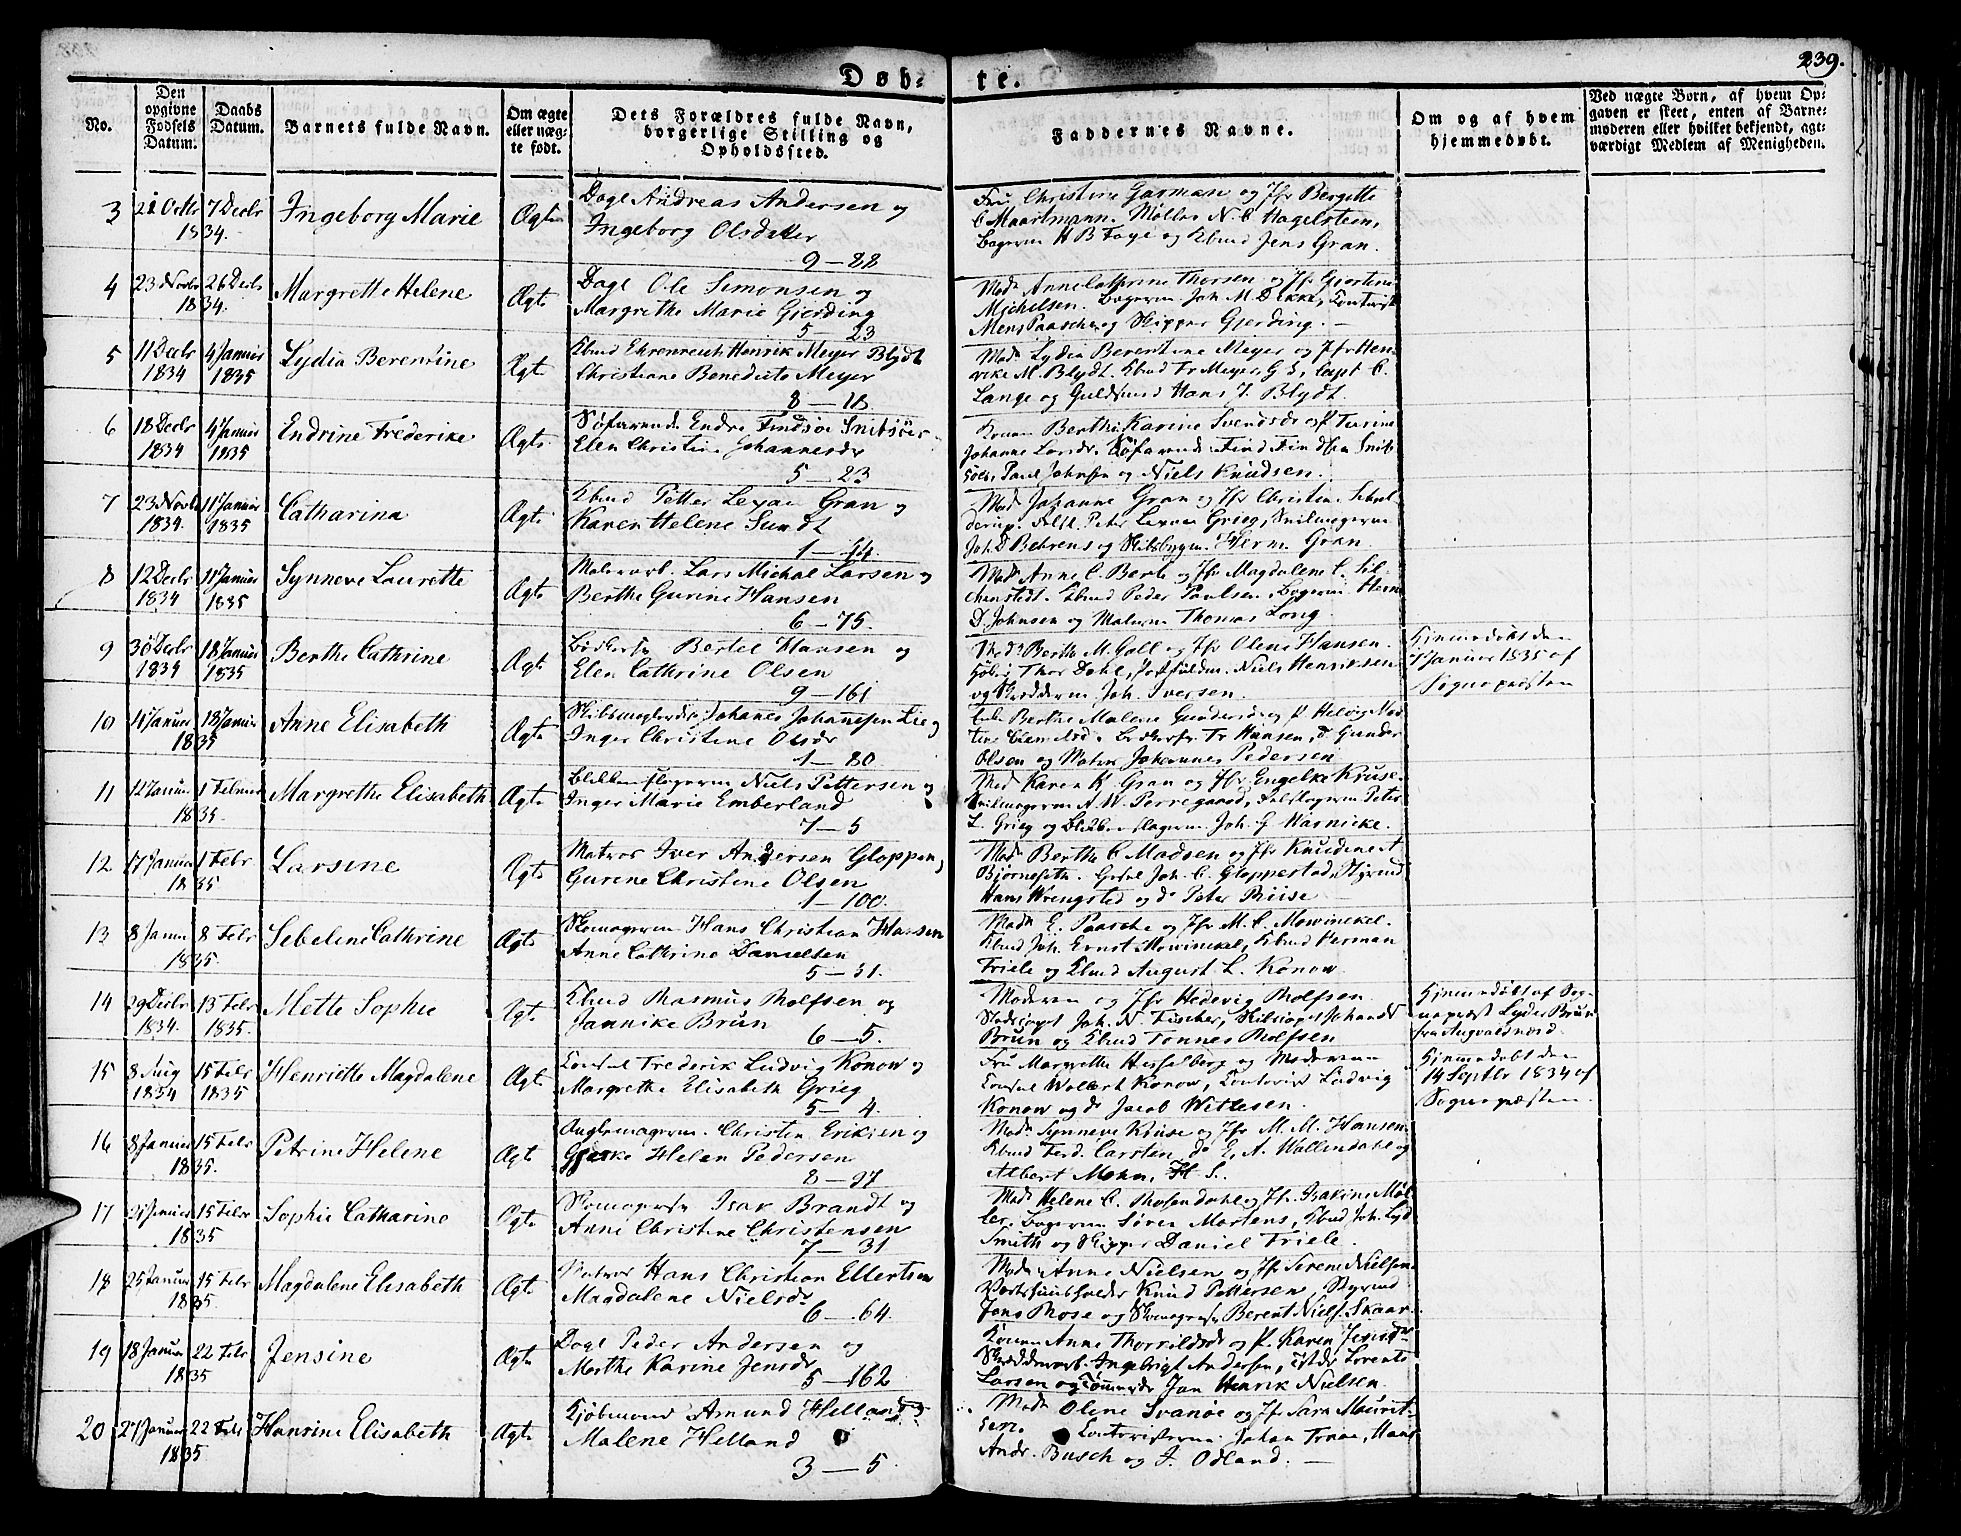 239.
Døbte.
No.
Den opgivne Fødsels Datum.
Daabs Datum.
Barnets fulde Navn.
Om ægte eller uægte født.
Dets Forældres fulde Navn, borgerlige Stilling og Opholdssted.
Faddernes Navne.
Om og af hvem hjemmedøbt.
Ved uægte Børn, af hvem Opgaven er skeet, enten af Barnemoderen eller hvilket bekjendt, agtværdigt Medlem af Menigheden.
3 21 Octbr 7 Decbr 1834. Ingeborg Marie Ægte
Dagl Andreas Andersen og
Ingeborg Olsdatter
9 — 88
Fru Christine Garman og Jfr Bergitte
C Maartmann. Møller N. C. Hagelsteen,
Bagerm H B Faye og Kbmd Jens Gran.
4 23 Novbr 26 Decbr 1834. Margrethe Helene Ægte
Dagl Ole Simonsen og
Margrethe Marie Gjerding
5 — 23
Mad. Anne Cathrine Thorsen og Jfr Gjertine
Michelsen. Bagerm Joh M. Dekke, Contorist
Mens Paasche og Skipper Gjerding.
5 11 Decbr 1834 4 Januar 1835 Lydia Berentine Ægte
Kbmd Ehrenreich Henrik Meyer Blydt
Christiane Benedicte Meyer
8 — 18
Mad. Lydia Berentine Meyer og Jfr Hen-
rike M. Blydt. Kbmd Fr Meyer G. S, Capt C.
Lange og Guldsmed Hans J. Blydt.
6 18 Decbr 1834 4 Januar 1835 Endrine Frederike Ægte
Søfarende Endre Findsøn Snilsöer
Elen Christine Johannesdr
5 — 23
Konen Berthe Karine Svendsdr og P. Turine
Johanne Larsdr. Søfarende Find Findsen Snil-
söer, Paul Johnsen og Niels Knudsen.
7 23 Novbr 1834. 11 Januar 1835 Catharina Ægte
Kbmd Petter Lexau Gran og
Karen Helene Sundt
1 — 14
Mad. Johanne Gran og Jfr Christine
Peter Lexau Grieg, Seilmagerm
Joh. D Behrens og Skibsbygm. Herm. Gran.
8 12 Decbr 1834 11 Januar 1835 Synneve Laurette Ægte
Malersv. Lars Michal Larsen og
Berthe Gurine Hansen
6 — 75.
Mad. Anne C. Berle og Jfr Magdalene C. Sil-
chenstedt. Kbmd Peder Paulsen, Bagerm Herm
D. Johnsen og Malerm Thomas Long
9 30 Decbr 1834 18 Januar 1835 Berthe Cathrine Ægte
Bødkersv Bertel Hansen og
Elen Cathrine Olsen
9 — 161
Mad. Berthe M. Gall og Jfr Olene Hansen.
Thor Dahl, Niels Henriksen
og Skrædderm. Joh. Iversen.
Hjemmedøbt den
1 Januar 1835 af
Sognepræsten
10 18 Januar 1835 Anne Elisabeth Ægte
Johanes Johannesen Lie og
Inger Christine Olsdr
1 — 80
Berthe Malene Gundersdr og P Helvig Mar-
Bødkersv Fr Hansen, Gunder
Olsen og Matros Johannes Pedersen
11 12 Januar 1 Februar 1835. Margrethe Elisabeth Ægte
Blikkenslagerm Niels Pettersen og
Inger Marie Emberland
7 — 5
Mad Karen K. Gran og Jfr Engelke Kruse.
Seilmagerm A. W. Perregaard, Peter
L. Grieg og Blikkenslagerm. Joh. G Warnicke.
12 17 Januar 1 Febr 1835 Larsine Ægte
Matros Iver Andersen Gloppen,
Gurine Christine Olsen
1 — 100.
Mad. Berthe C. Madsen og Jfr Knudine A
Bjørnseth. Joh. C. Gloppestad, Styrmd
Hans Wrengsted og do Peter Riise
13 8 Januar 8 Febr 1835. Sebelene Cathrine Ægte
Skomagerm Hans Christian Hansen
Anne Cathrine Danielsen
5 — 31.
Mad. E. Paasche og Jfr M. C. Mowinckel.
Kbmd Joh. Ernst Mowinckel, Kbmd Herman
Friele og Kbmd August L. Konow.
14 29 Decbr 1834. 13 Febr 1835. Mette Sophie Ægte
Kbmd Rasmus Rolfsen og
Jannike Brun
6 — 5.
Moderen og Jfr Hedevig Rolfsen.
Joh. N. Fischer, Johan
Brun og Kbmd Tonnes Rolfsen
Hjemmedøbt af Sog-
nepræst Lyder Brun
fra Augvaldsnæs.
15 8 Aug 1834 15 Febr 1835 Henriette Magdalene Ægte
Consul Frederik Ludvig Konow og
Margrethe Elisabeth Grieg
5 — 4.
Fru Margrethe Hesselberg og Moderen
Consul Wollert Konow, Contorist Ludvig
Konow og do Jacob Wittesen.
Hjemmedøbt den
14 Septbr 1834 af
Sognepræsten
16 8 Januar 15 Febr 1835. Petrine Helene Ægte
Christen Eriksen og
Gjeske Helene Pedersen
8 — 97
Mad. Synneve Kruse og Jfr M. M. Hansen
Kbmd Ferd. Carsten, do E. A. Wallendahl og
Albert Mohn, H S.
17 21 Januar 15 Febr 1835 Sophie Catharine Ægte
Skomagersv Isak Brandt og
Anne Christine Christensen
7 — 31
Mad. Helene C. Rosendahl og Jfr. Isakine Møl-
ler. Bagerm Søren Martens, Kbmd Joh. Lyd
Smith og Skipper Daniel Friele.
18 25 Januar 15 Febr 1835. Magdalene Elisabeth Ægte
Matros Hans Christian Ellertsen
Magdalene Nielsdr
6 — 64.
Mad. Anne Nielsen og Jfr Serene Nielsen
Knud Pettersen, Styrmd
Jens Rose og Skomagersv Berent Niels. Skaar.
19 18 Januar 22 Febr 1835 Jensine Ægte
Dagl Peder Andersen og
Marthe Karine Jensdr
5 — 162
Konen Anne Thorrildsdr og P. Karen Jensdr
Skræddersv. Ingebrigt Andersen, Lorents
Larsen og Jan Henrik Nielsen.
20 27 Januar 22 Febr 1835 Hansine Elisabeth Ægte
Kjøbmand Amund Helland og
Malene Helland
3 — 5.
Mad. Olene Svanøe og Jfr Sara Maurit-
sen. Johan Troae, Hans
Andr. Busch og J. Odland.